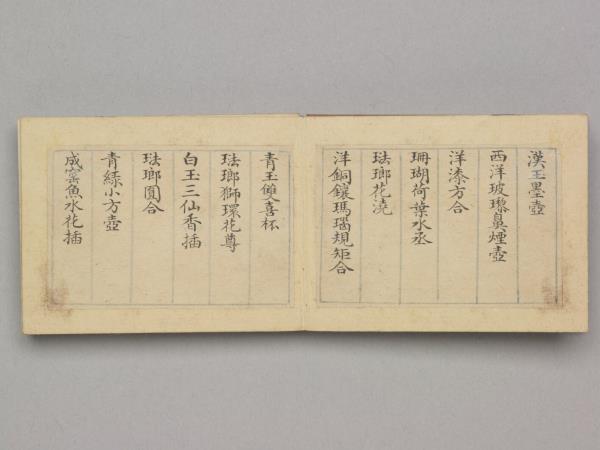 漢玉墨壺
西洋玻瓈鼻煙壺
洋漆方合
珊瑚荷葉水丞
琺瑯花澆
洋銅鑲瑪瑙規矩合
青玉雙喜杯
琺瑯獅環花尊
白玉三仙香插
琺瑯圓合
青綠小方壺
成窯魚水花插